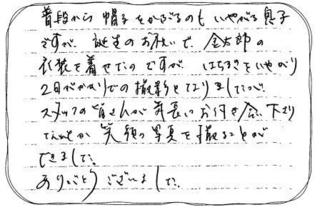 普段から帽子をかぶるのもいやがる息子
ですが、誕生のお祝いで、金太郎の
衣装を着せたのですが はちまきをいやがり
2日がかりでの撮影となりましたが、
スタッフの皆さんが気長にお付き合い下さり
なんとか笑顔の写真を撮ることが
できました。
ありがとうございました。